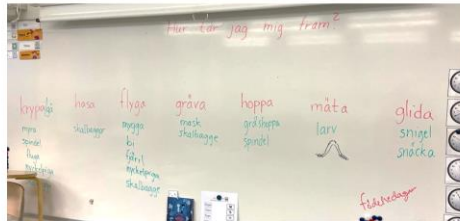 Hur tar jag mig fram?
krypa/gå
myra
spindel
fluga
nyckelpiga
hasa
skalbagge
flyga
mygga
bi
fjäril
nyckelpiga
skalbagge
gräva
mask
skalbagge
hoppa
gräshoppa
spindel
mäta
larv
glida
snigel
snäcka
födelsedagar